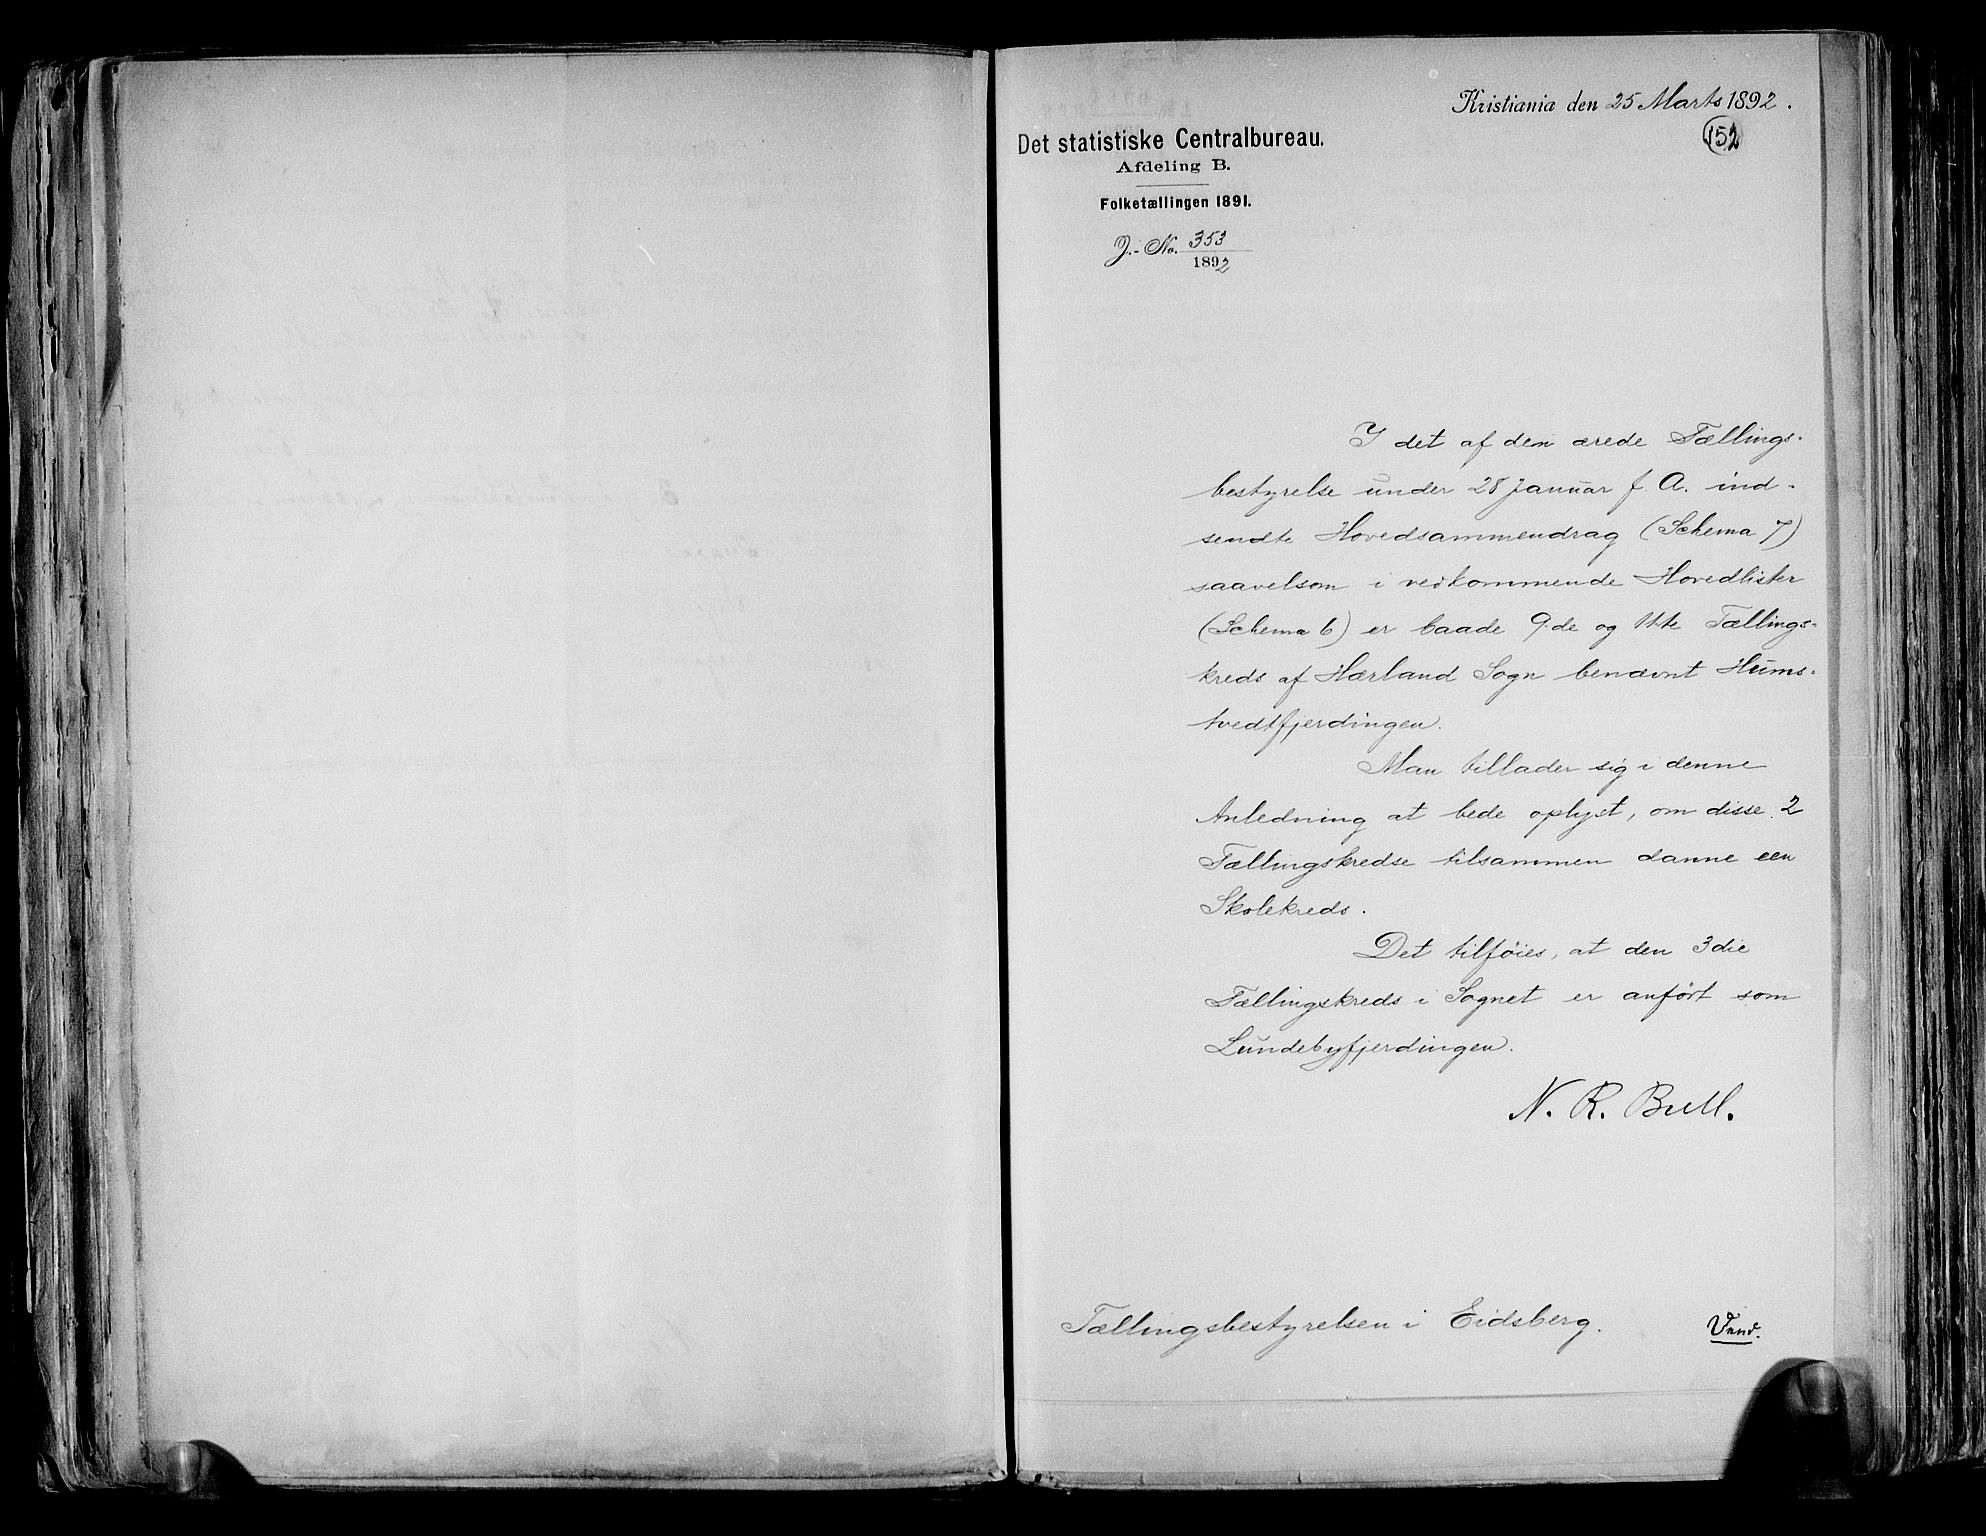 Kristiania den 25 Marts 1892.
152
Det statistiske Centralbureau.
Afdeling B.
Folketællingen 1891.
J.-No. 353
1892
I det af den ærede Tællings-
bestyrelse under 28 Januar f. A. ind-
sendte Hovedsammendrag (Schema 7)
saavelsom i vedkommende Hovedlister
(Schema 6) er baade 9.de og 11.te Tællings-
kreds af Hærland Sogn benævnt Hums-
tvedtfjerdingen.
Man tillader sig i denne
Anledning at bede oplyst, om disse 2
Tællingskredse tilsammen danne een
Skolekreds.
Det tilføies, at den 3die
Tællingskreds i Sognet er anført som
Lundebyfjerdingen.
N. R. Bull.
Tællingsbestyrelsen i Eidsberg.
Vend.